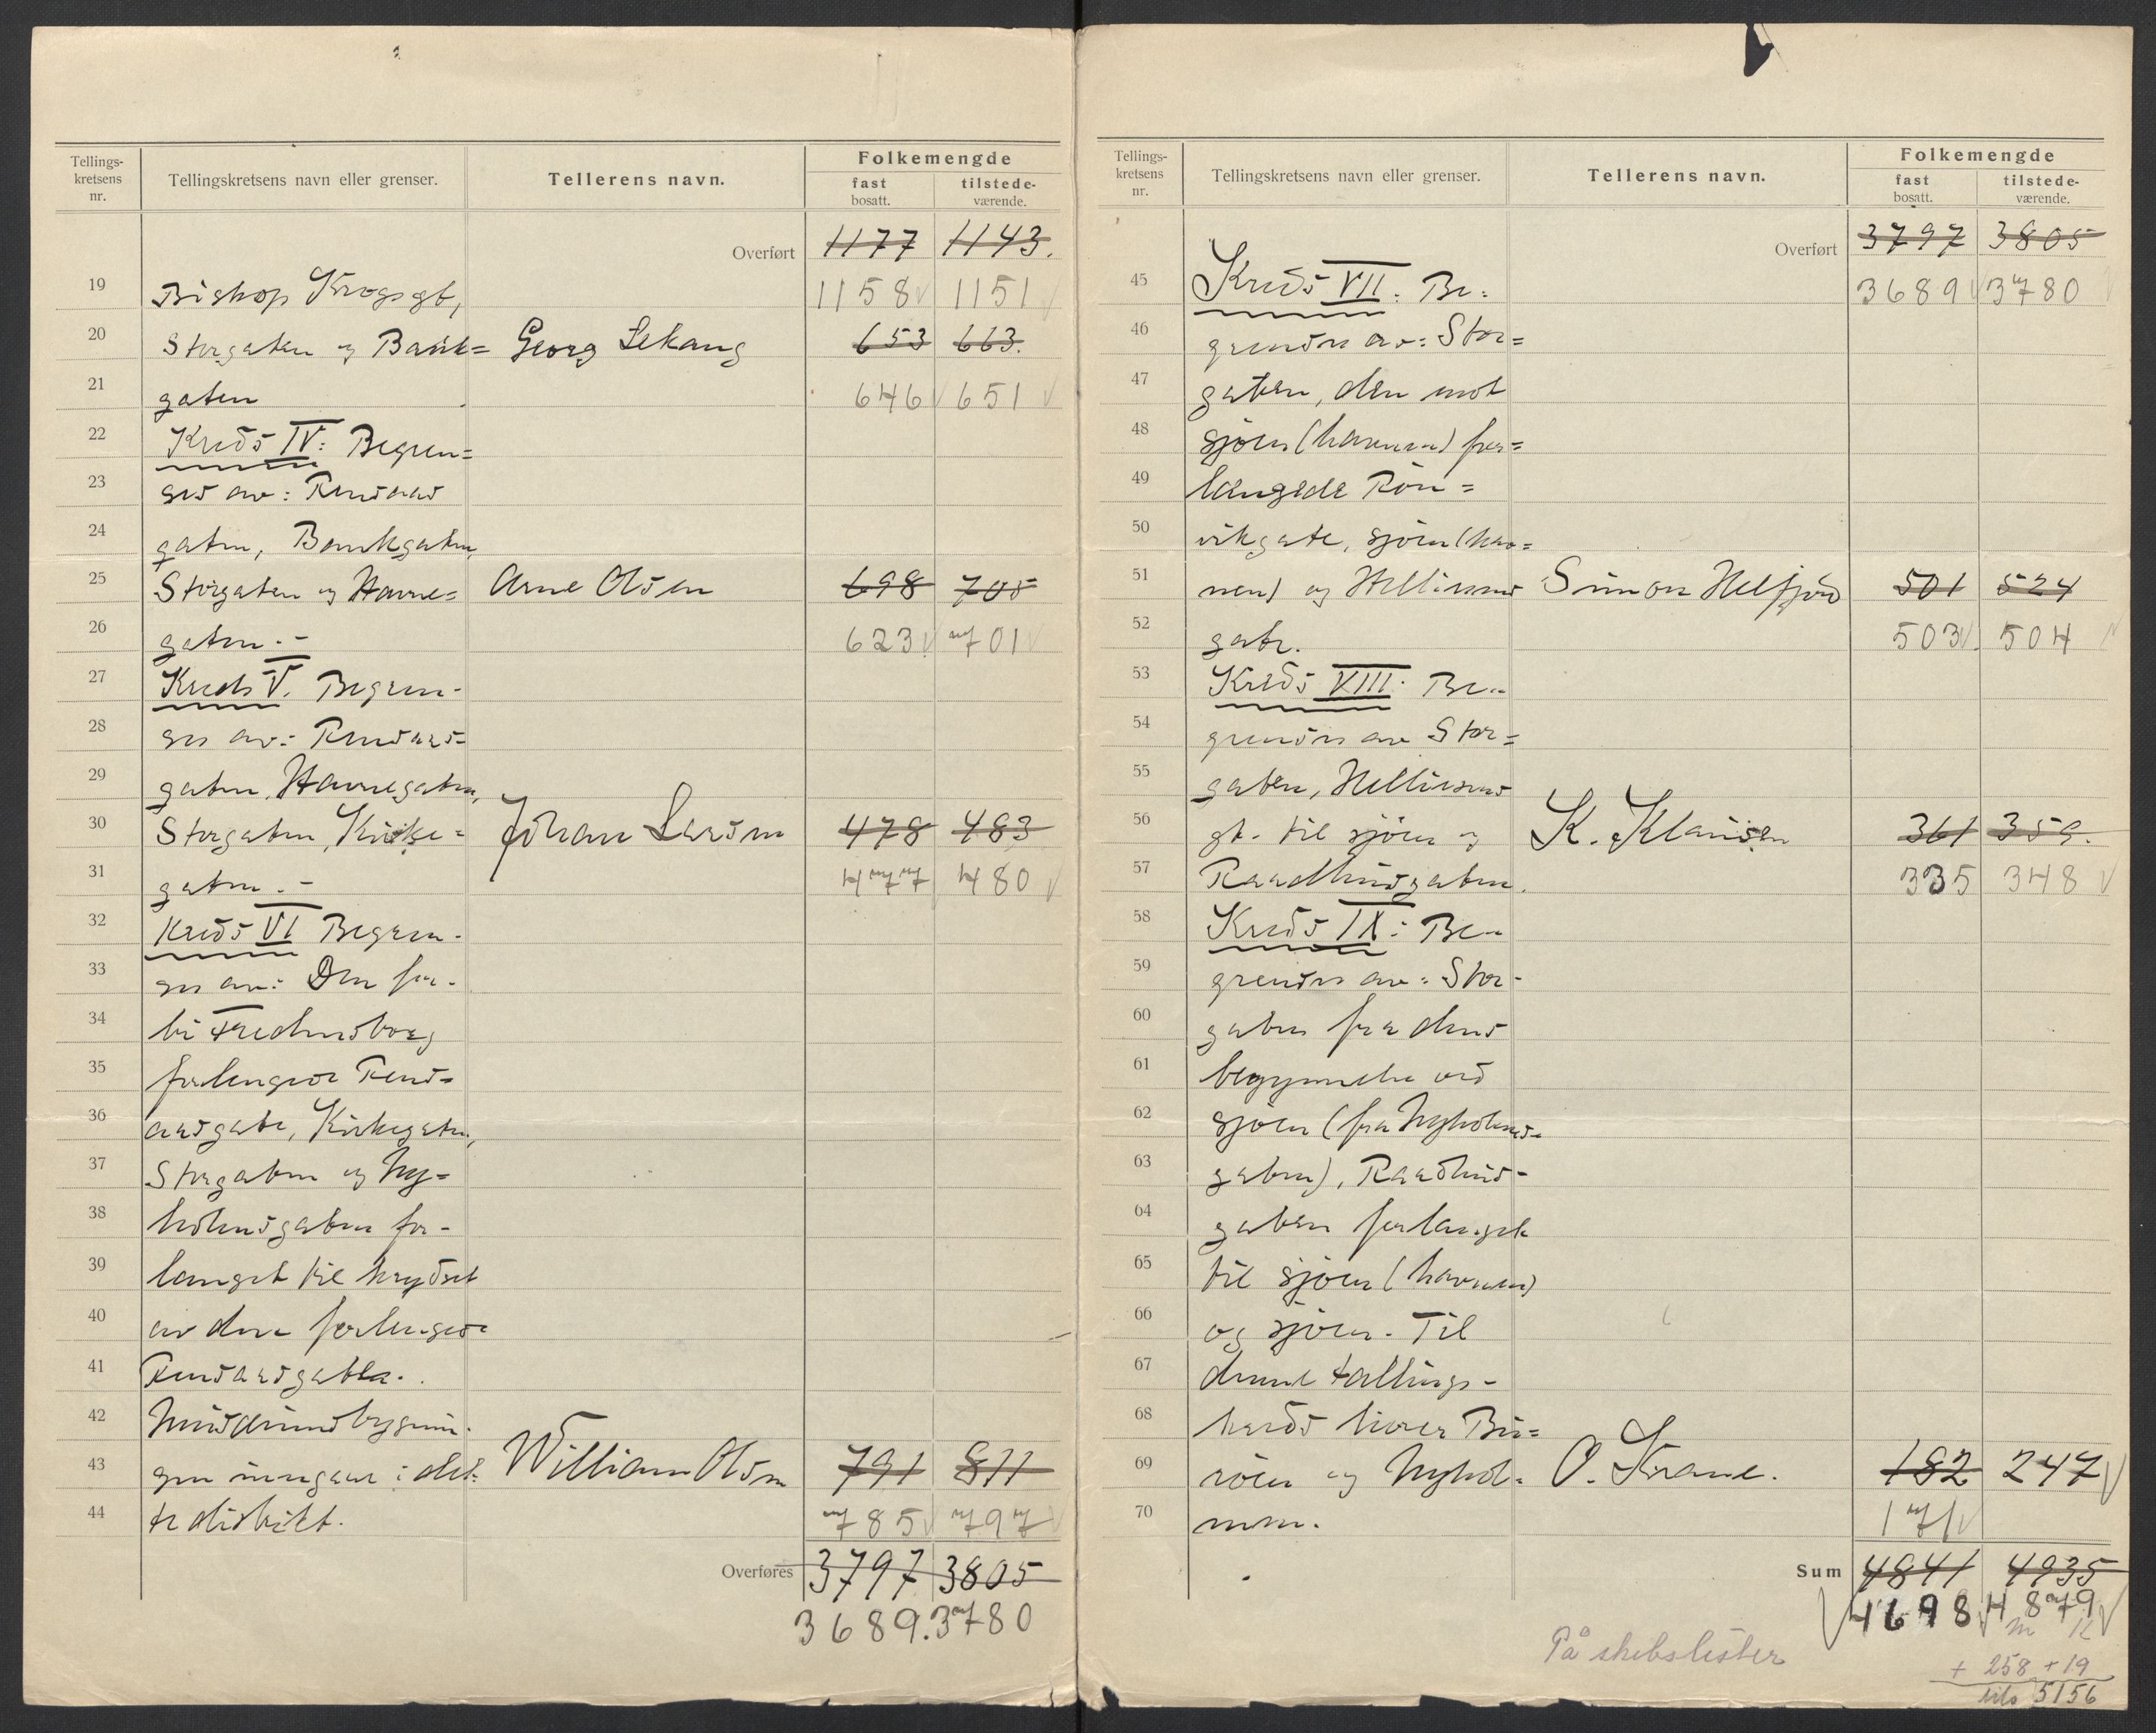 Tellings-kretsens nr. Tellingskretsens navn eller grenser. Tellerens navn. Folkemengde fast bosatt. tilstede-værende.
Overført 1177 1143.
19 Bishop Krogsgt, 1158 1151
20 Storgaten og Bank= Georg Lekang 653 663.
21 gaten 646 651
22 Kreds IV: Begren=
23 ses av: Rensaas
24 gaten, Bankgaten,
25 Storgaten og Havne= Arne Olsen 698 705
26 gaten.- 623 701
27 Kreds V. Begren-
28 ses av: Rensaas-
29 gaten, Havnegaten,
30 Storgaten, Kirke= Johan Larsen 478 483
31 gaten.- 477 480
32 Kreds VI Begren-
33 ses av: Den for-
34 bi Fredensborg
35 forlengede Rens-
36 aasgate, Kirkegaten,
37 Storgaten og Ny=
38 holmsgaten for-
39 lenget til krydset
40 av den forlengede
41 Rensaasgata.
42
43 gen inngaar i det- William Olsen 791 811
44 te distrikt. 785 797
Overføres 3797 3805
3689. 3780
Tellings-kretsens nr. Tellingskretsens navn eller grenser. Tellerens navn. Folkemengde fast bosatt. tilstede-værende.
Overført 3797 3805
45 Kreds VII: Be= 3689 3780
46 grenses av: Stor=
47 gaten, den mot
48 sjöen (havnen) for=
49 længede Rön=
50 vikgate, sjöen (hav=
51 nen) og Hellisens Simon Helfjord 501 524
52 gate. 503 504
53 Kreds VIII. Be-
54 grenses av Stor=
55 gaten, Hellisens
56 gt. til sjöen og K. Klausen 361 359.
57 Raadhusgaten. 335 348
58 Kreds IX: Be-
59 grenses av: Stor-
60 gaten fra dens
61 begynnelse ved
62 sjöen (fra Nyholms-
63 gaten), Raadhus-
64 gaten forlenget
65 til sjöen (havnen)
66 og sjöen. Til
67 denne tellings-
68 kreds hörer Bur=
69 röen og Nyhol- O. Krane. 182 247
70 men. 171
Sum 4841 4935
4698 4879
m k
På skibslister + 258 + 19
tils 5156